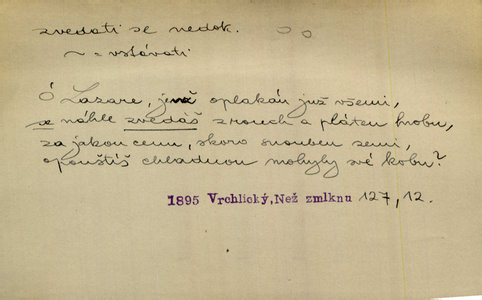 zvedati se nedok.
~ = vstávati
Ó Lazare, jenž oplakán již všemi,
se náhle zvedáš z rouch a pláten hrobu,
za jakou cenu, skoro snouben zemi,
opouštíš chladnou mohyly své kobu?
1895 Vrchlický, Než zmlknu 127, 12.